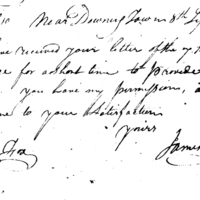 Near Downing Town 8th
received your letter of the
for a short time to provide
you have my permission,
to your Satisfaction
yours
James